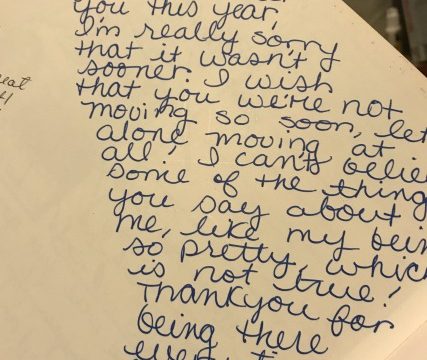 you this year,
I'm really sorry
that it wasn't
sooner. I wish
that you were not
moving so soon, let
alone moving at
all! I can't belie
some of the thing
you say about
me, like my bein
so pretty, which
is not true!
Thankyou for
being there
eat